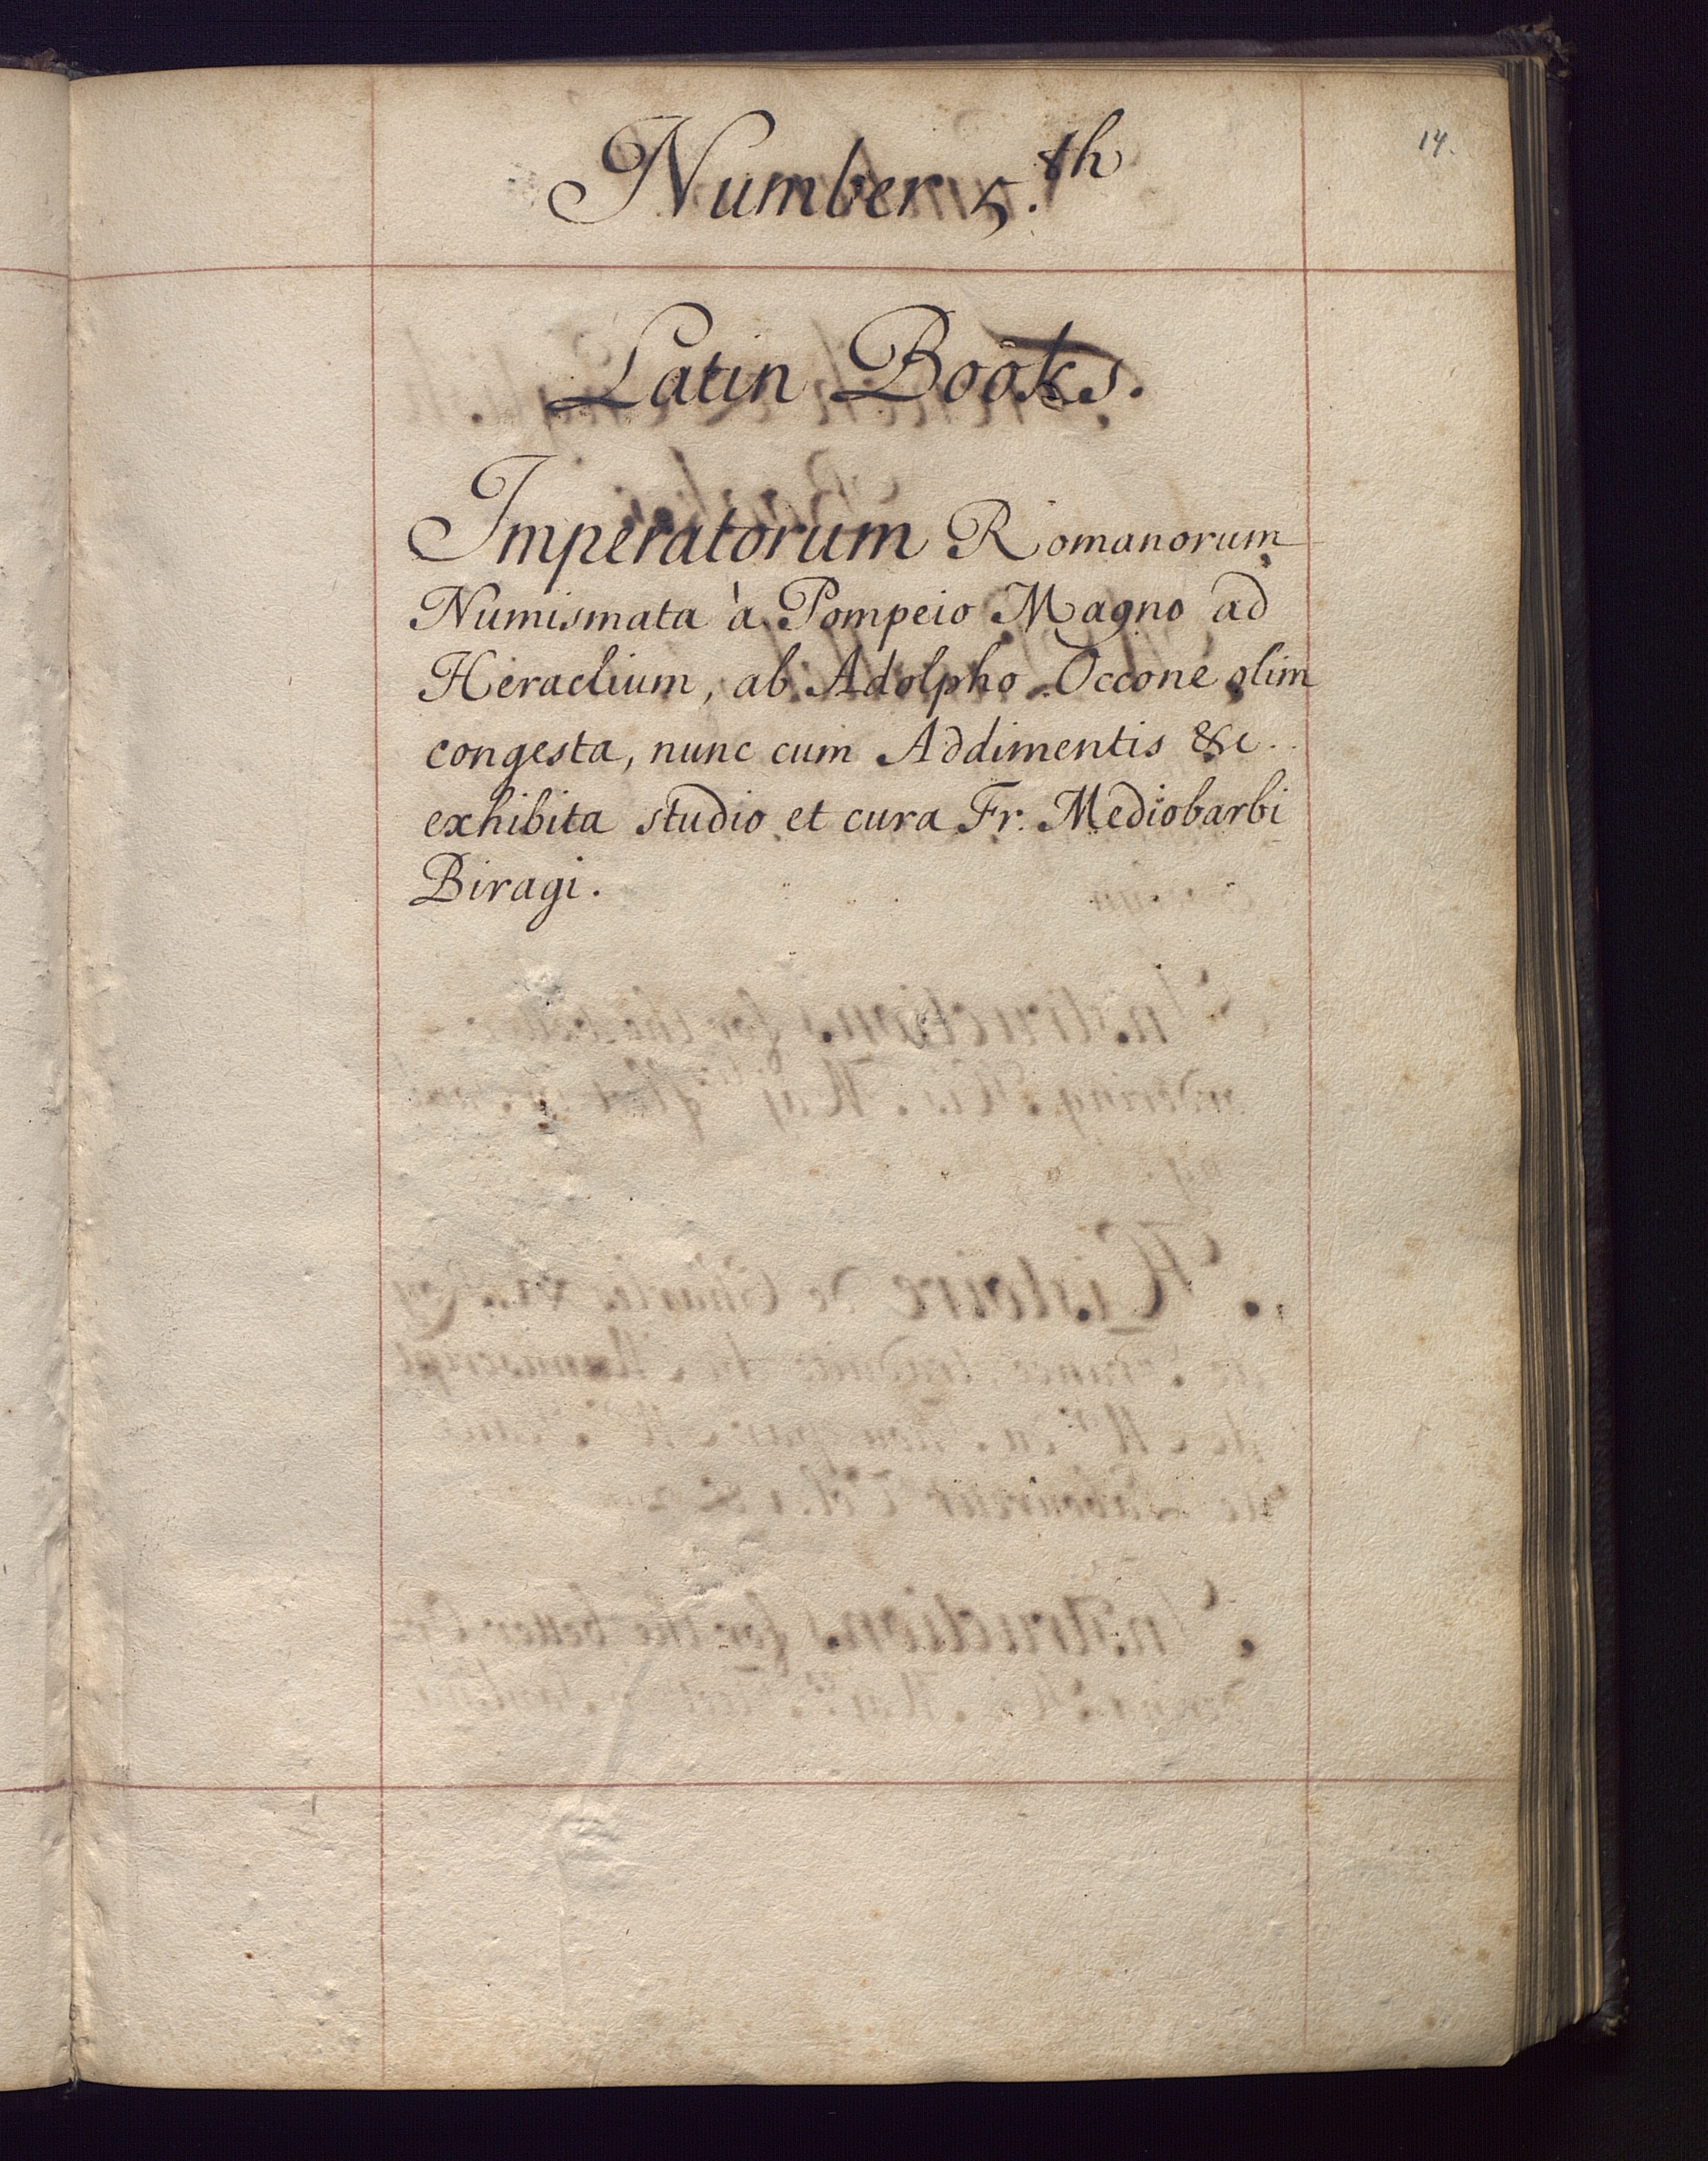 14.
Number 5.th
Latin Books.
Imperatorum Romanorum
Numismata à Pompeio Magno ad
Heraclium, ab Adolpho Occone olim
congesta, nunc cum Addimentis &c.
exhibita studio et cura Fr. Mediobarbi
Biragi.